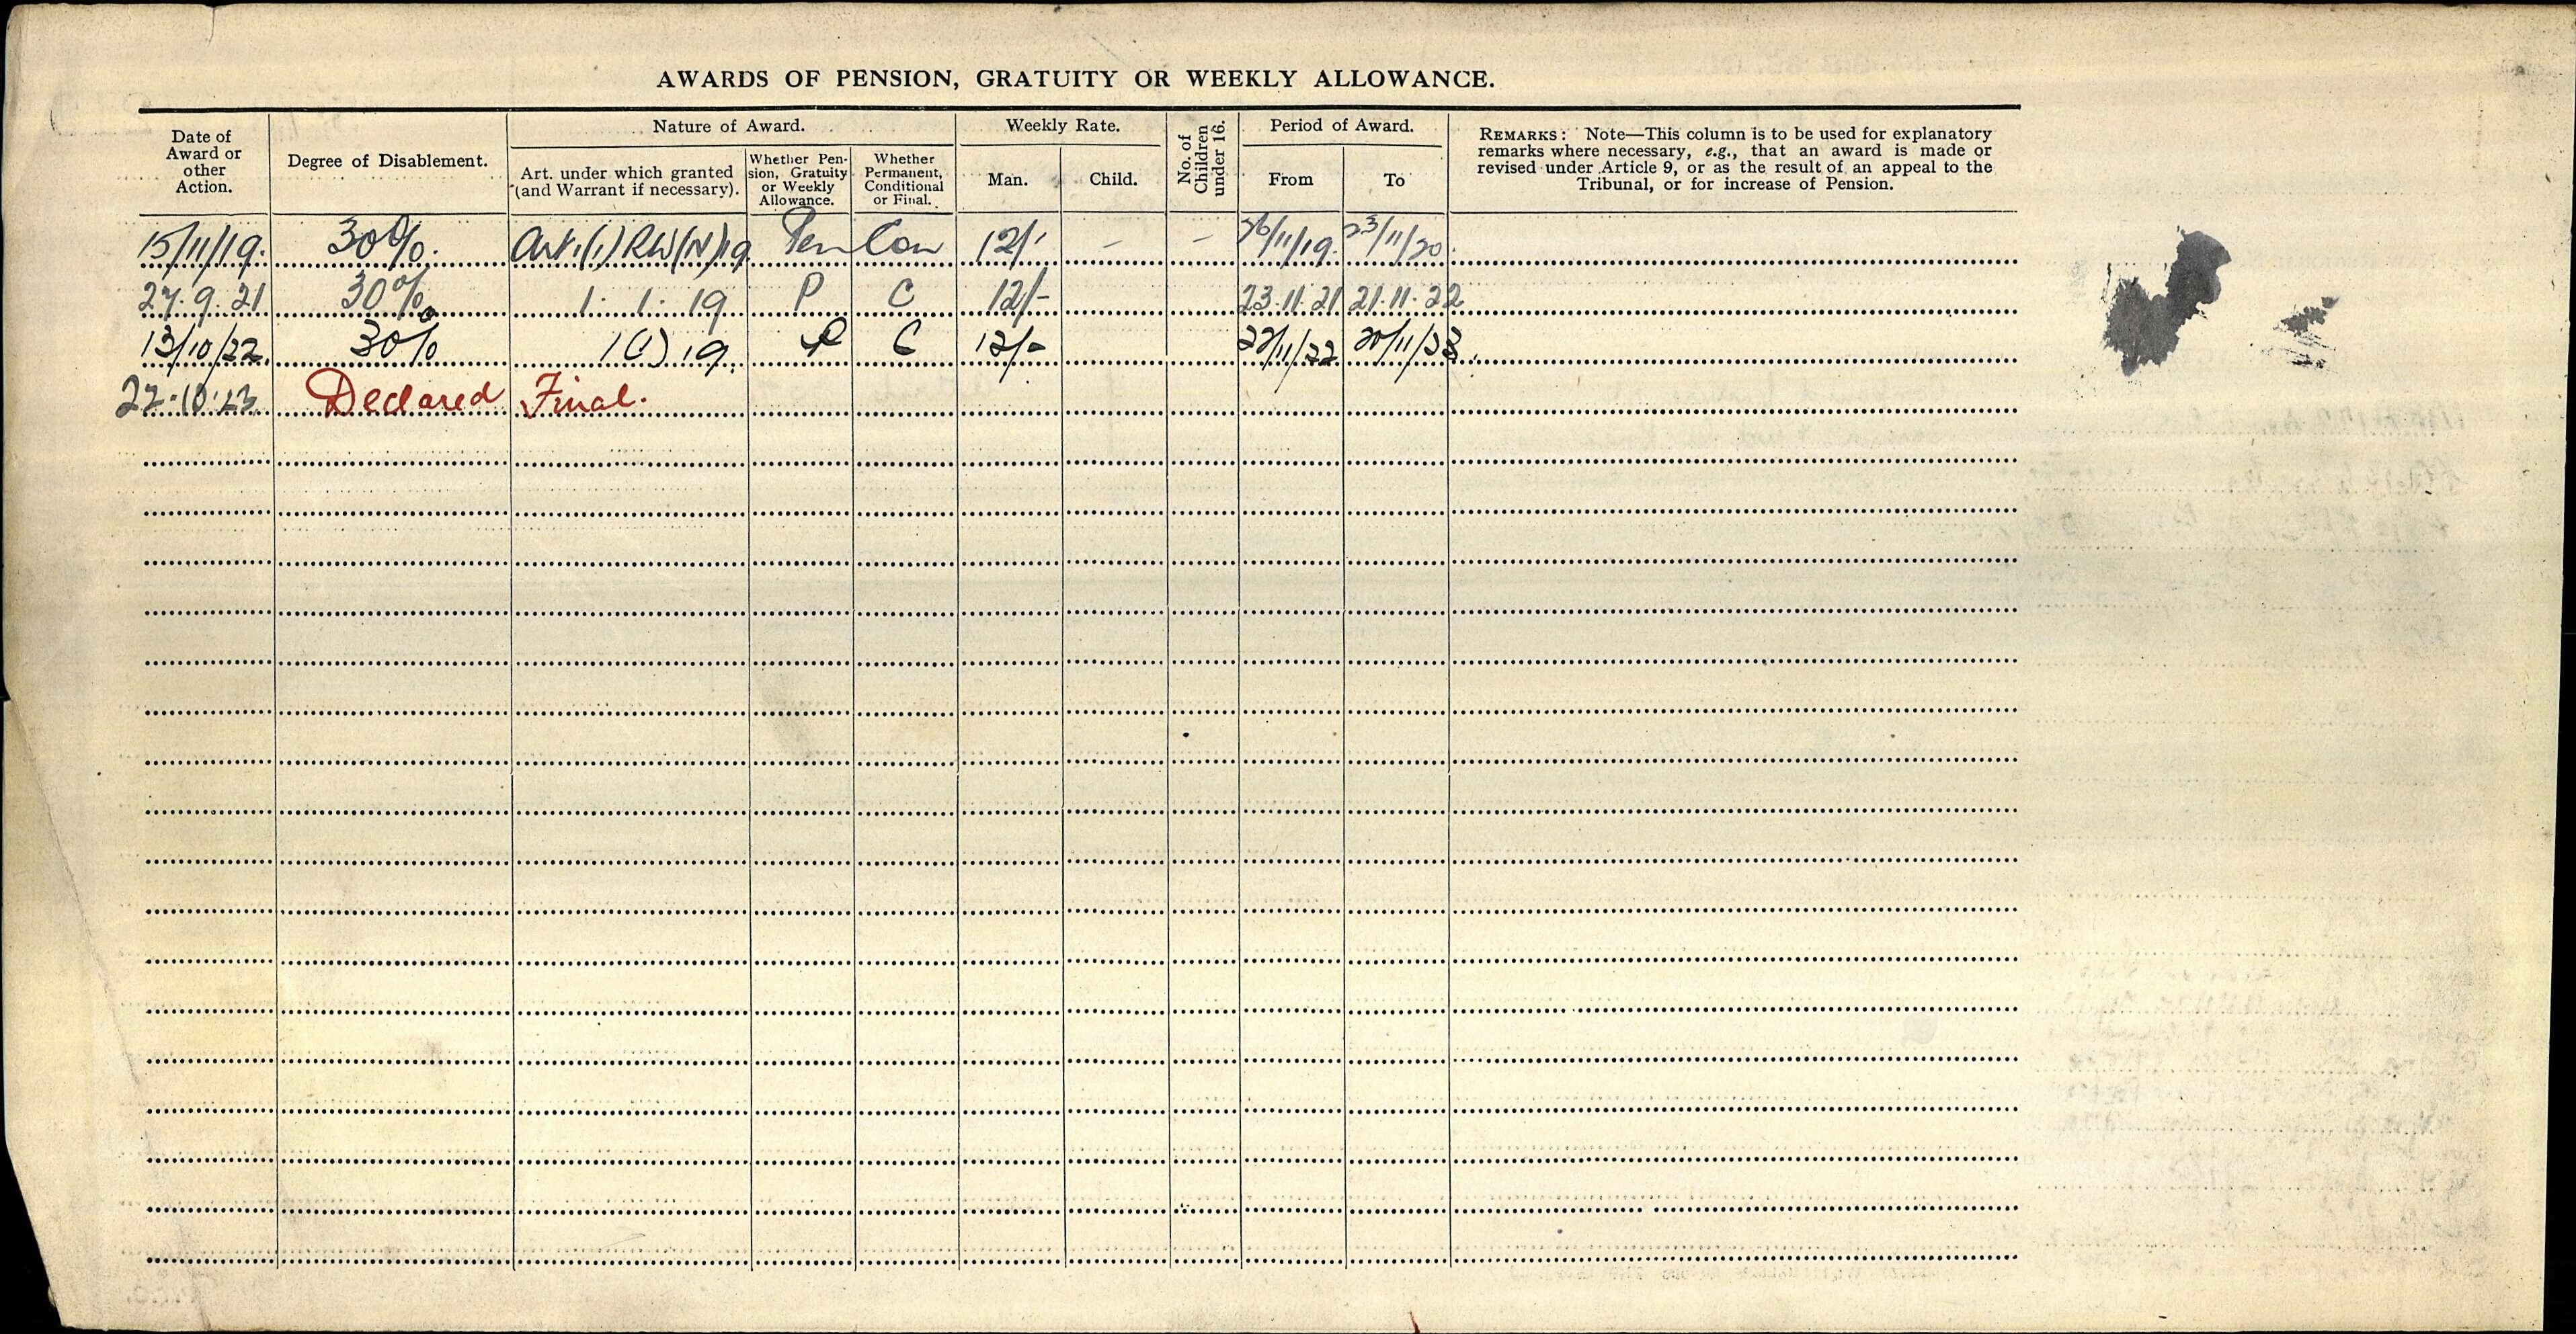 AWARDS OF PENSION, GRATUITY OR WEEKLY ALLOWANCE.
Date of Award or other Action.
Degree of Disablement.
Nature of Award.
Art. under which granted (and Warrant if necessary).
Whether Pension, Gratuity or Weekly Allowance.
Whether Permanent, Conditional or Final.
Weekly Rate.
Man.
Child.
No. of Children under 16.
Period of Award.
From
To
REMARKS: Note—This column is to be used for explanatory
remarks where necessary, e.g., that an award is made or
revised under Article 9, or as the result of an appeal to the
Tribunal, or for increase of Pension.
15/11/19. 30%. Art.1(1)RW(N)19 Pen Con 12/- — — 26/11/19. 23/11/20.
27.9.21 30% 1.1.19 P C 12/- 23.11.21 21.11.22
13/10/22. 30% 1(1)19. P C 12/- 22/11/22 20/11/23.
22.10.23 Declared Final.